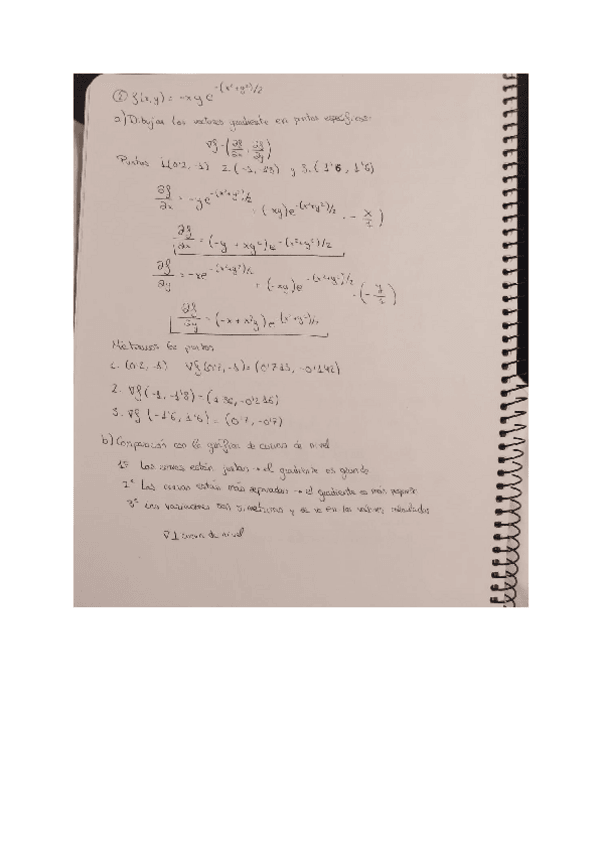 ② f(x,y) = -xy e^-(x²+y²)/2
a) Dibujar los vectores gradiente en puntos específicos.
∇f = (∂f/∂x, ∂f/∂y)
Puntos 1.(0'2, -1) 2.(-1, -1'8) y 3.(1'6, 1'6)
∂f/∂x = -y e^-(x²+y²)/2 (xy) e^-(x²+y²)/2 · - x/2)
∂f/∂x = (-y + xy²) e^-(x²+y²)/2
∂f/∂y = -x e^-(x²+y²)/2 (-xy) e^-(x²+y²)/2 · (- y/2)
∂f/∂y = (-x + x²y) e^(x²+y²)/2
Metemos los puntos
1. (0'2, -1) ∇f(0'2, -1) = (0'715, -0'142)
2. ∇f(-1, -1'8) = (, -0'216)
3. ∇f(-1'6, 1'6) = (0'7, -0'7)
b) Comparación con la gráfica de curvas de nivel
1º Las curvas están juntas → el gradiente es grande
2º Las curvas están más separadas → el gradiente es más pequeño
3º Las variaciones son simétricas y se ve en los valores calculados
∇ ⊥ curva de nivel